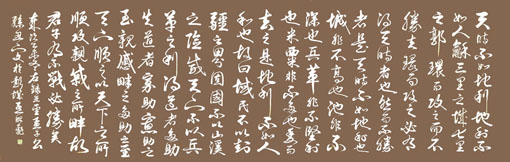 天時不如地利地利不
如人龢三里之城七里
之郭環而攻之而不
勝夫環而攻之必有
得天時者矣然而不勝
者是天時不如地利也
城非不高也池非不
深也兵革非不堅利
也米粟非不多也委而
去之是地利不如人
和也故曰域民不以封
疆之界固國不以山溪
之險威天下不以兵
革之利得道者多助
失道者寡助寡助之
至親戚畔之多助之至
天下順之以天下之所
順攻親戚之所畔故
君子有不戰戰必勝矣